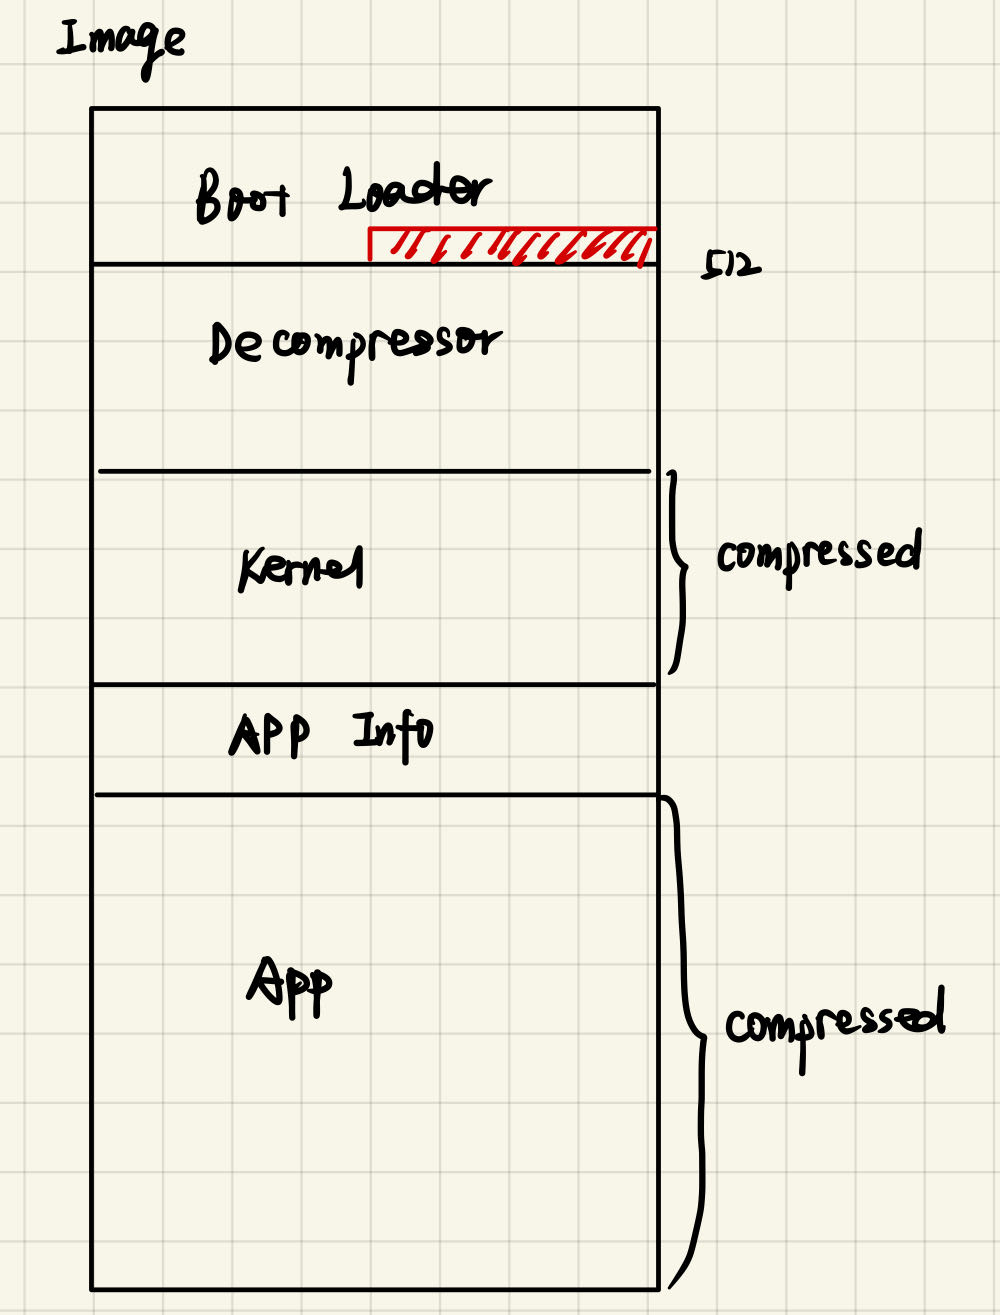 Image
Boot Loader
512
Decompressor
Kernel
compressed
APP Info
App
compressed